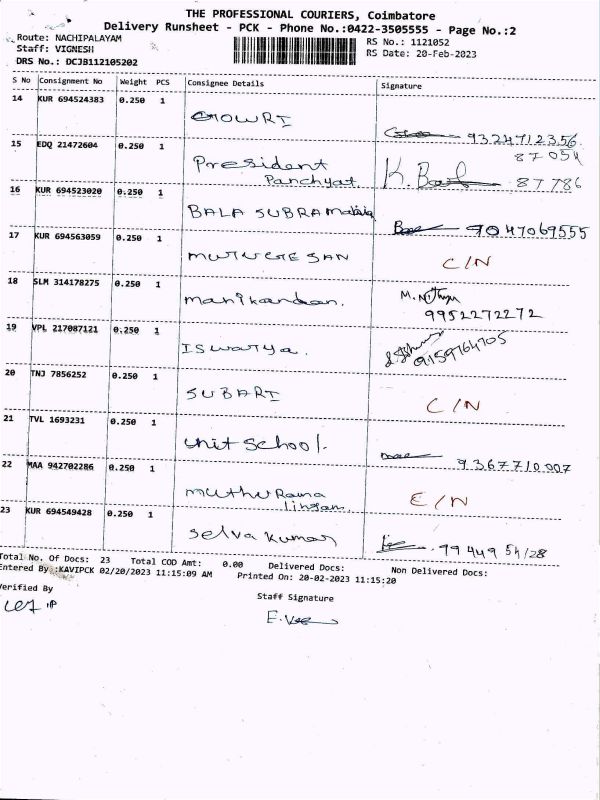 THE PROFESSIONAL COURIERS, Coimbatore
Delivery Runsheet - PCK - Phone No.:0422-3505555 - Page No.:2
Route: NACHIPALAYAM
Staff: VIGNESH
DRS No.: DCJB112105202
RS No.: 1121052
RS Date: 20-Feb-2023
S No Consignment No Weight PCS Consignee Details Signature
14 KUR 694524383 0.250 1 GOWRI 9324712356
15 EDQ 21472604 0.250 1 President Panchyat 87054
87786
16 KUR 694523020 0.250 1 BALA SUBRAMania 9047069555
17 KUR 694563059 0.250 1 MURUGESAN C/N
18 SLM 314178275 0.250 1 Manikandan. M. Nithya
9952272272
19 VPL 217087121 0.250 1 ISwarya. 9159764705
20 TNJ 7856252 0.250 1 SUBARI C/N
21 TVL 1693231 0.250 1 Unit School. 9367710007
22 MAA 942702286 0.250 1 Muthu Rama lingam E/N
23 KUR 694549428 0.250 1 Selva Kumar 99449 54128
Total No. Of Docs: 23 Total COD Amt: 0.00 Delivered Docs: Non Delivered Docs:
Entered By :KAVIPCK 02/20/2023 11:15:09 AM Printed On: 20-02-2023 11:15:20
Verified By
Staff Signature